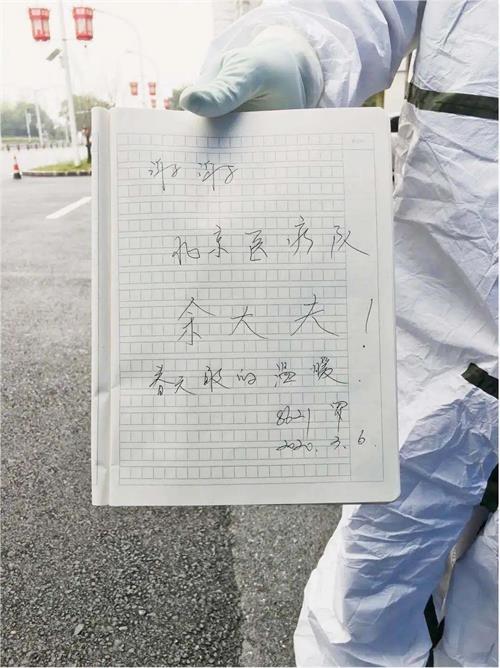 谢谢
北京医疗队
余大夫！
春天般的温暖.
2020.3.6.